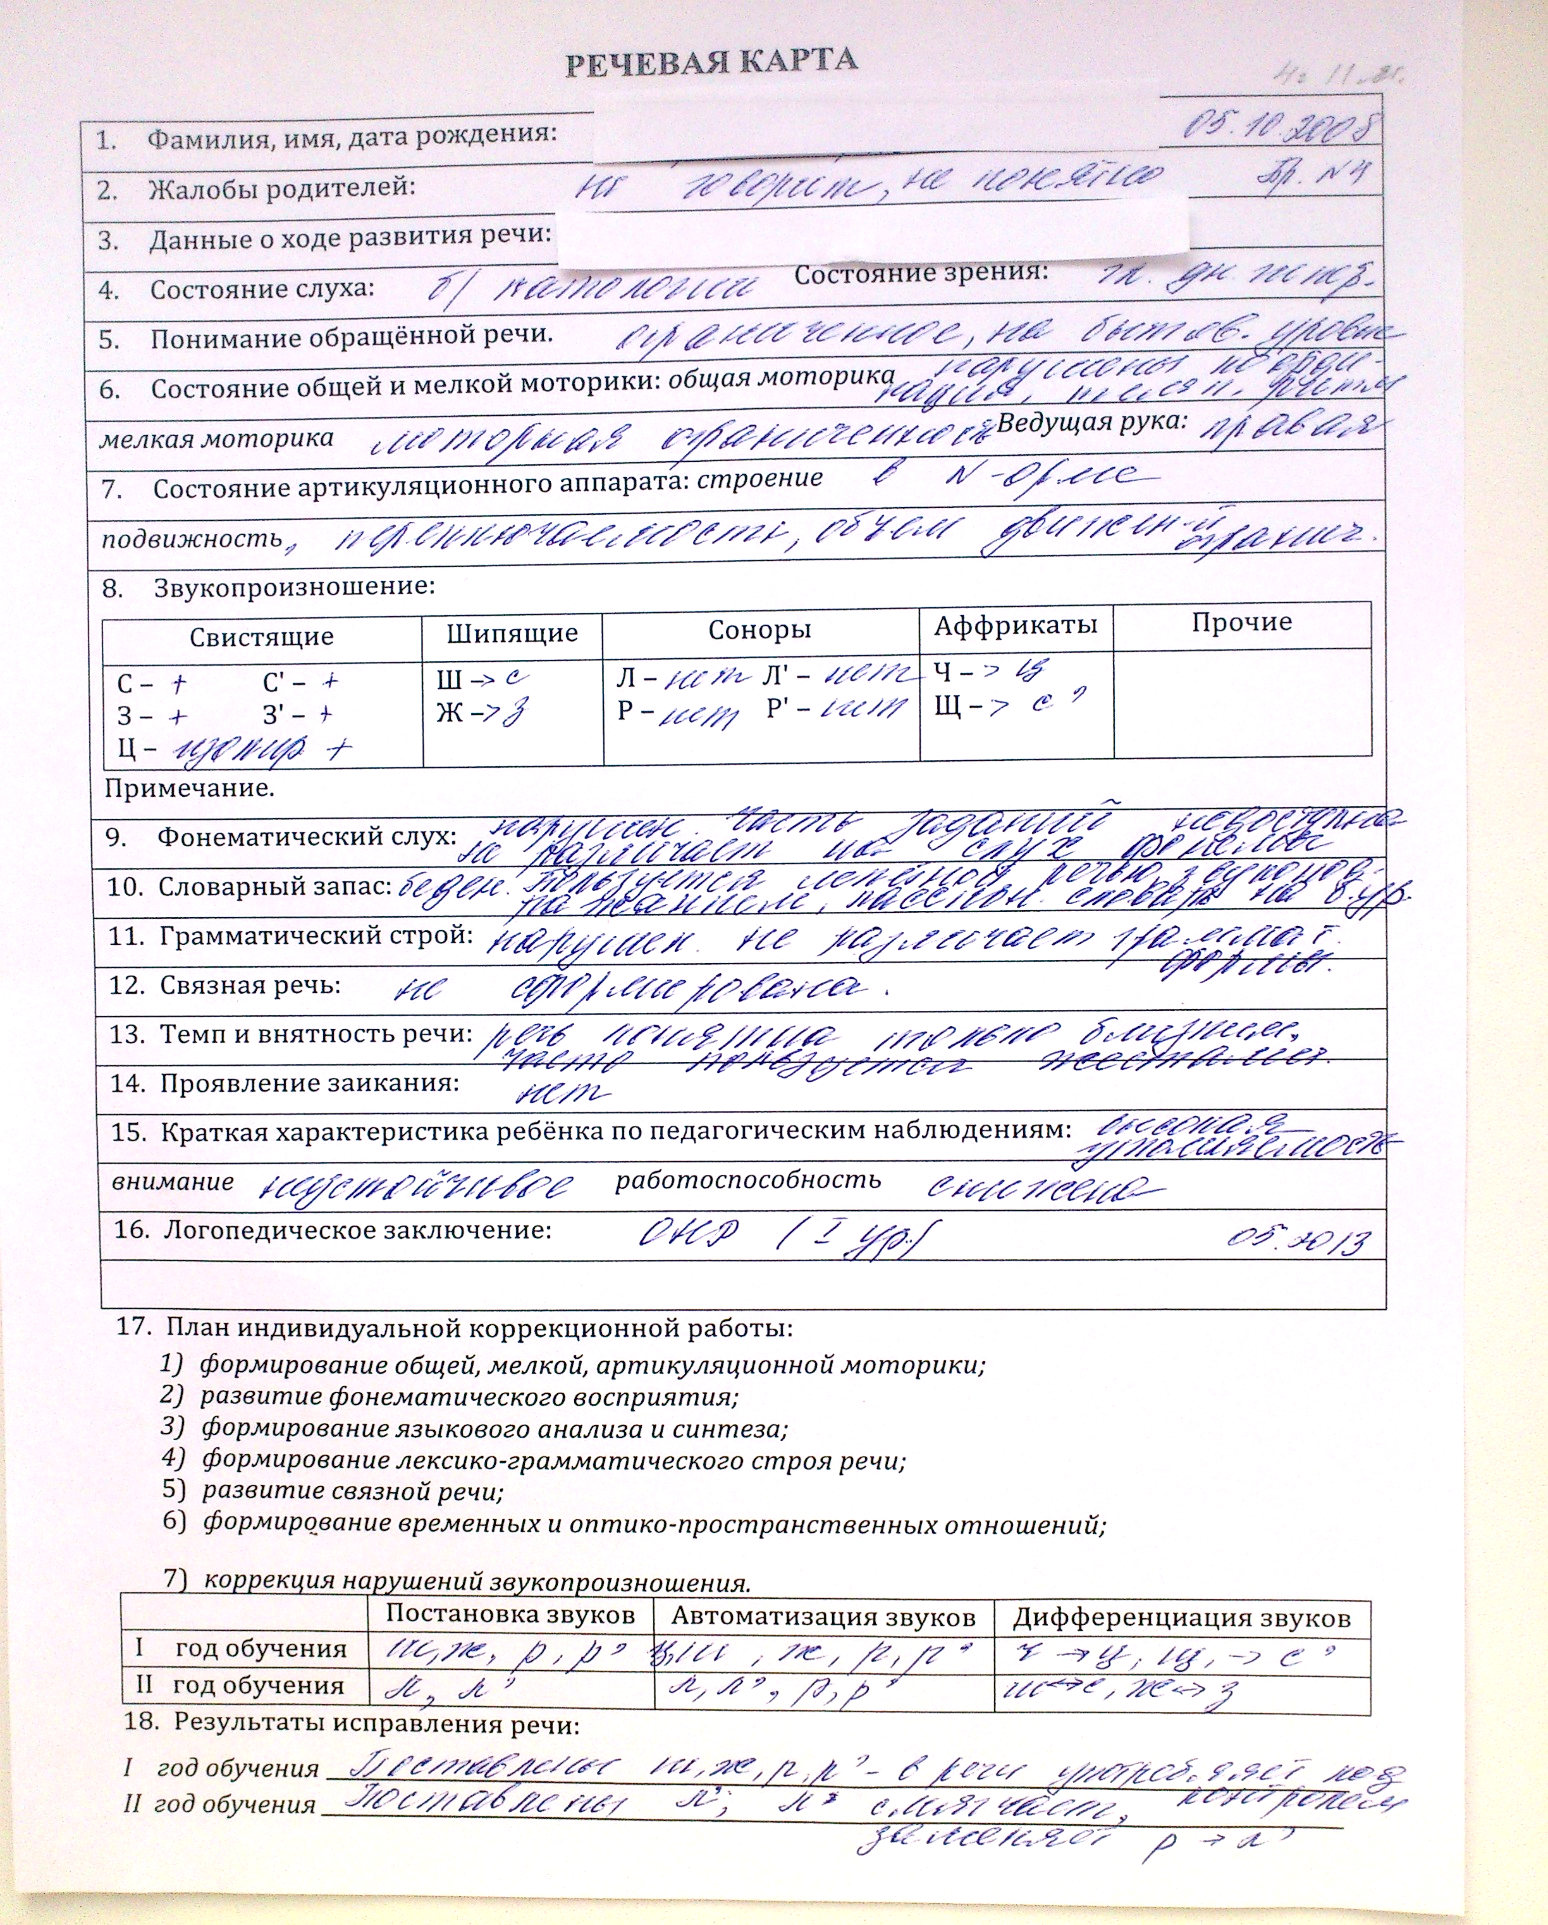 РЕЧЕВАЯ КАРТА
1. Фамилия, имя, дата рождения: 05.10.2008
2. Жалобы родителей: не говорит, не понятно Гр. №4
3. Данные о ходе развития речи:
4. Состояние слуха: б/ патологии Состояние зрения: гл. дн.
5. Понимание обращённой речи. ограниченное, на бытов. уровне
6. Состояние общей и мелкой моторики: общая моторика нарушены коорди-
нация,
мелкая моторика моторная ограниченность Ведущая рука: правая
7. Состояние артикуляционного аппарата: строение в N-орме
подвижность, переключаемость, объем движен-й огранич.
8. Звукопроизношение:
Свистящие Шипящие Соноры Аффрикаты Прочие
С – + С' – + Ш –> с Л – нет Л' – нет Ч –> ц
З – + З' – + Ж –> з Р – нет Р' – нет Щ –> с'
Ц – изолир +
Примечание.
9. Фонематический слух: нарушен. часть заданий недоступна
не различает на слух фонемы
10. Словарный запас: беден. пользуется речью, звукопод-
ражанием, пассивн. словарь на б.ур.
11. Грамматический строй: нарушен. не различает граммат.
формы.
12. Связная речь: не сформирована.
13. Темп и внятность речи: речь понятна только близким,
часто пользуется жестами.
14. Проявление заикания: нет
15. Краткая характеристика ребёнка по педагогическим наблюдениям: высокая
утомляемость
внимание неустойчивое работоспособность снижена
16. Логопедическое заключение: ОНР (I ур.) 05.2013
17. План индивидуальной коррекционной работы:
1) формирование общей, мелкой, артикуляционной моторики;
2) развитие фонематического восприятия;
3) формирование языкового анализа и синтеза;
4) формирование лексико-грамматического строя речи;
5) развитие связной речи;
6) формирование временных и оптико-пространственных отношений;
7) коррекция нарушений звукопроизношения.
Постановка звуков Автоматизация звуков Дифференциация звуков
I год обучения ш, ж, р, р' ц, ш, ж, р, р' ч → ц, щ, → с'
II год обучения л, л' л, л', р, р' ш↔с, ж↔з
18. Результаты исправления речи:
I год обучения Поставлены ш, ж, р, р' – в речи употребляет под
контролем
II год обучения Поставлены л, л' смягчает,
заменяет р → л'